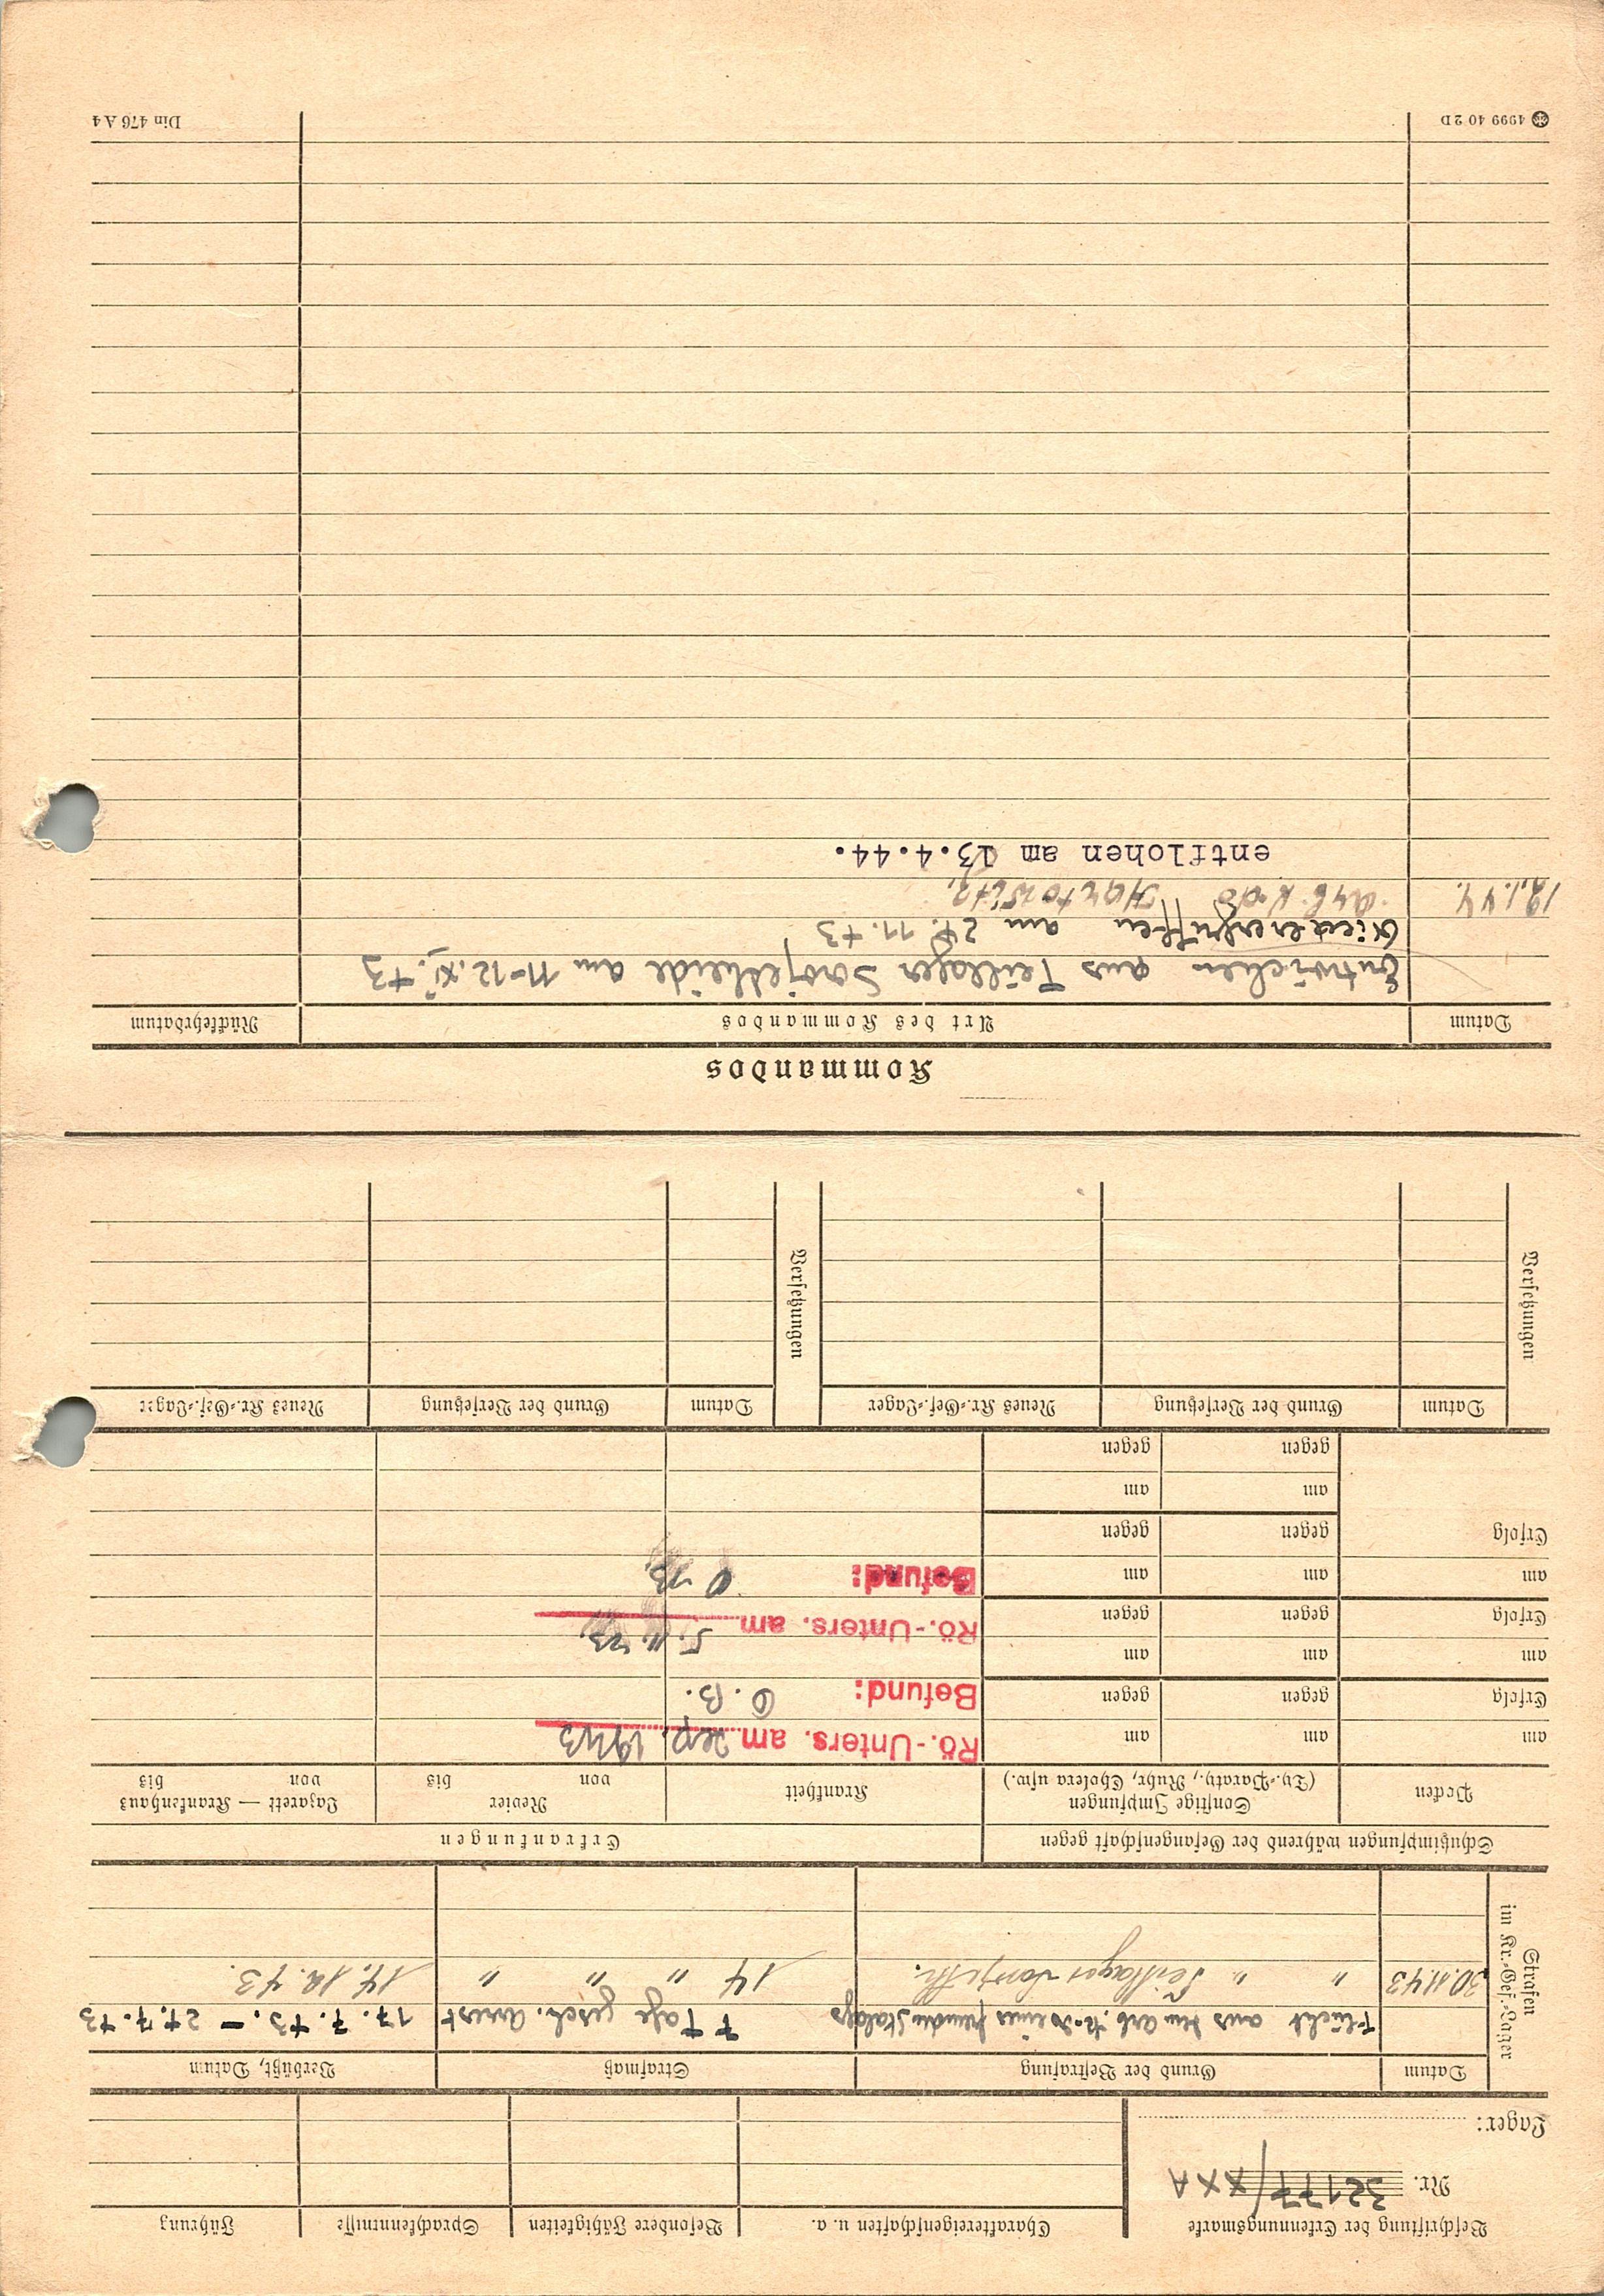 Beschriftung der Erkennungsmarke
Nr. 32177/XX A
Lager:
Charaktereigenschaften u. a.
Besondere Fähigkeiten
Sprachkenntnisse
Führung
Strafen im Kr.-Gef.-Lager
Datum
Grund der Bestrafung
Strafmaß
Verbüßt, Datum
Flucht aus dem Arb. Kdo eines fremden Stalags
7 Tage gesch. Arrest
17.7.43. – 24.7.43
30.11.43
" " Teillager
14 " " "
14.12.43.
Schutzimpfungen während der Gefangenschaft gegen
Erkrankungen
Pocken
Sonstige Impfungen
(Ty.-Paraty., Ruhr, Cholera usw.)
Krankheit
Revier
von bis
Lazarett — Krankenhaus
von bis
am
am
am
Rö.-Unters. am Sep. 1943
Erfolg
gegen
gegen
Befund: O.B.
am
am
am
Rö.-Unters. am 5.11.43.
Erfolg
gegen
gegen
Befund: O B.
am
am
am
Erfolg
gegen
gegen
am
am
gegen
gegen
Versetzungen
Datum
Grund der Versetzung
Neues Kr.-Gef.-Lager
Versetzungen
Datum
Grund der Versetzung
Neues Kr.-Gef.-Lager
Kommandos
Datum
Art des Kommandos
Rückkehrdatum
Entwichen aus Teillager am 11-12.XI.43
Wiederergriffen am 24.11.43
12.1.44. Arb. Kdo
entflohen am 13.4.44.
4999 40 2D
Din 476 A4